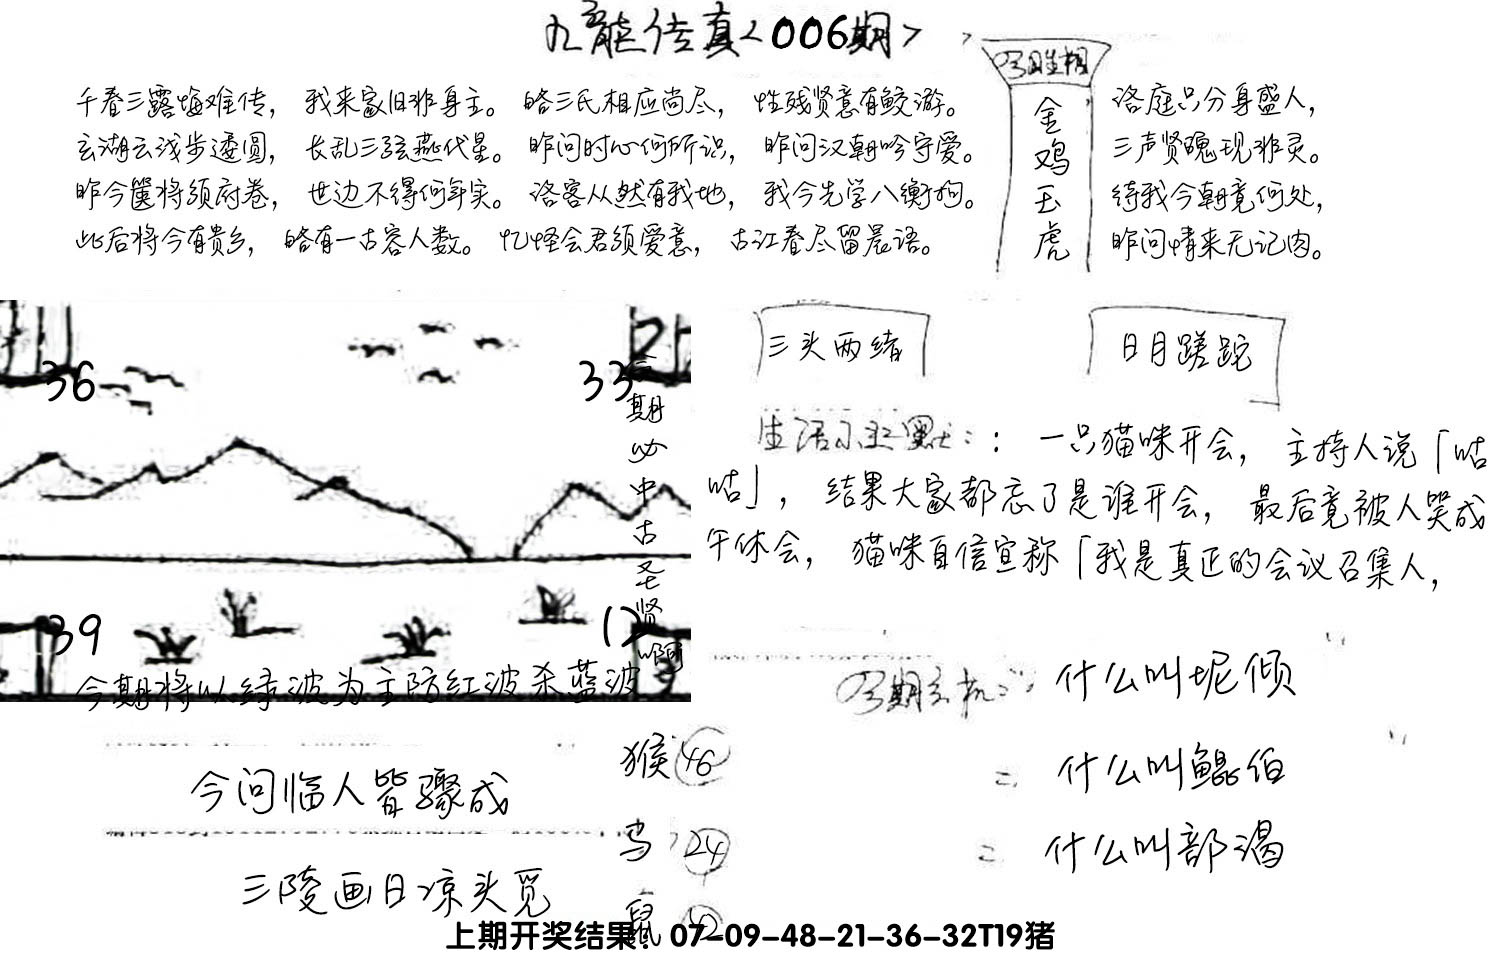 九龍传真<006期>
今日生相
千春三露悔难传，我来家旧非身主。皓三氏相应尚尽，性残贤意有鲛游。
洛庭只分身盛人，
玄湖云浅步逶圆，长乱三弦燕代星。昨问时心何所识，昨问汉朝吟守爱。
三声贤魄现非灵。
昨今箧将须府卷，世边不得何年实。洛客从然有我地，我今先学八衡拘。
待我今朝竟何处，
此后将今有贵乡，皓有一古客人数。忆怪会君须爱意，古江春尽留晨语。
昨问情来无记肉。
金鸡玉虎
36
33
39
12
期必中古圣贤啊
今期将以绿波为主防红波杀蓝波
三头两绪
日月蹉跎
生活小幽默：：一只猫咪开会，主持人说「咕
咕」，结果大家都忘了是谁开会，最后竟被人笑成
午休会，猫咪自信宣称「我是真正的会议召集人，
今期玄机：什么叫坭倾
什么叫鲲伯
什么叫部渴
今问临人皆骤成
三陵画日凉头觅
猴 46
鸡 24
鼠 42
上期开奖结果：07-09-48-21-36-32T19猪